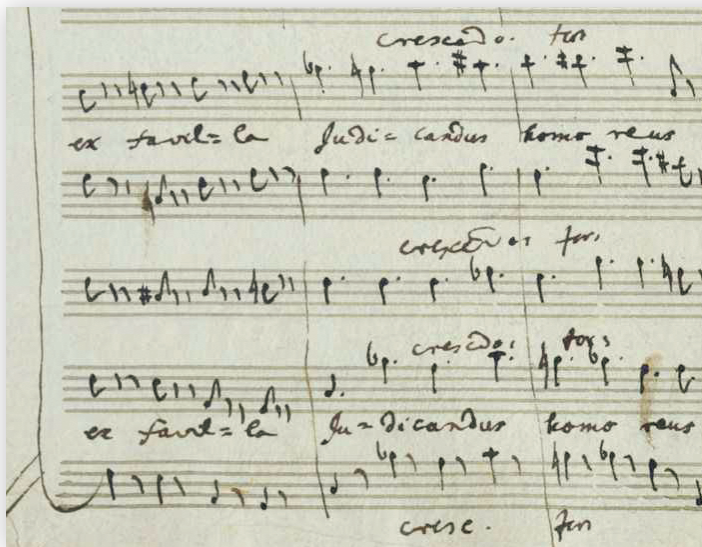 crescdo. for
ex favil= la Judi= candus homo reus
crescdo: for:
crescdo: for:
ex favil= la Ju= dicandus homo reus
cresc. for